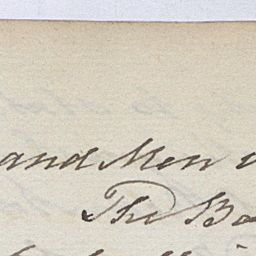 and Men
The Ba